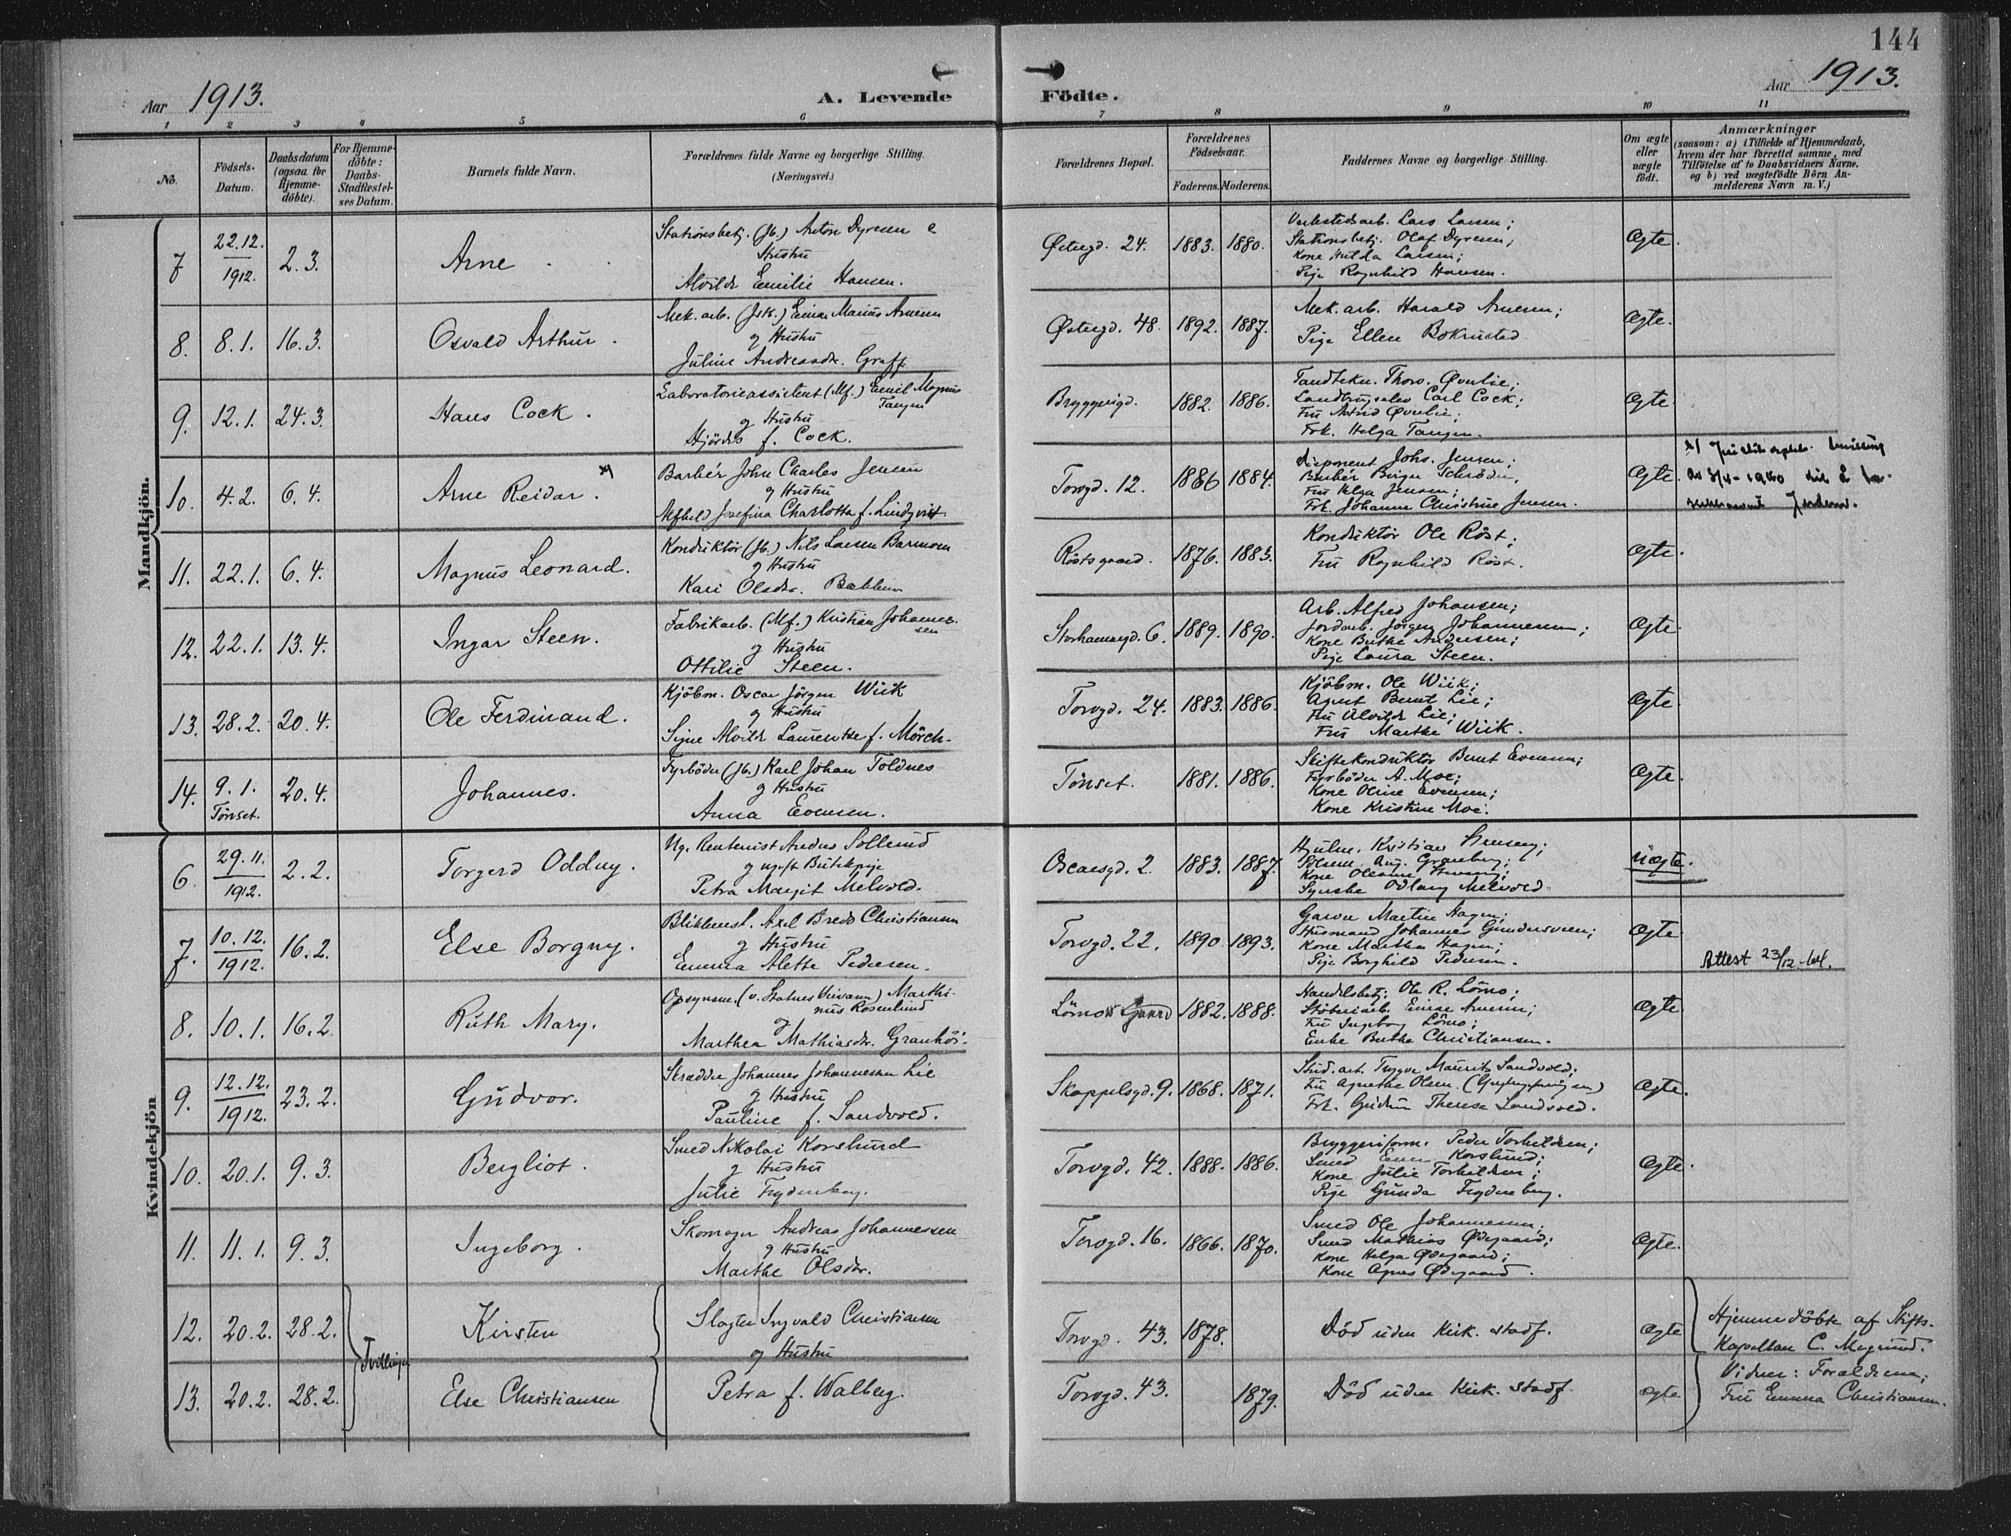 144
Aar 1913.
A. Levende Födte.
Aar 1913.
1 2 3 4 5 6 7 8 9 10 11
No.
Födsels-Datum.
Daabsdatum (ogsaa for Hjemme-döbte).
For Hjemme-döbte: Daabs-Stadfæstel-ses Datum.
Barnets fulde Navn.
Forældrenes fulde Navne og borgerlige Stilling.
(Næringsvei.)
Forældrenes Bopæl.
Forældrenes Födselsaar.
Faderens. Moderens.
Faddernes Navne og borgerlige Stilling.
Om ægte eller uægte födt.
Anmærkninger
(saasom: a) i Tilfælde af Hjemmedaab,
hvem der har forrettet samme, med
Tilföielse af to Daabsvidners Navne.
og b) ved uægtefödte Börn An-
melderens Navn m. V.)
Mandkjön.
7 22.12. 1912. 2.3. Arne
Stationsbetj. (Jb.) Anton Dyresen
Hustru
Alvilde Emilie Hansen.
Østregd. 24. 1883. 1880.
Verkstedsarb. Lars Larsen;
Stationsbetj. Olaf Dyresen;
Kone Hulda Larsen;
Pige Ragnhild Hansen.
Ægte.
8. 8.1. 16.3. Osvald Arthur.
Mek. arb. Einar Marius Arnesen
og Hustru
Juline Andreasdr. Graff
Østregd. 48. 1892. 1887.
Mek. arb. Harald Arnesen;
Pige Ellen Bokrustad
Ægte.
9. 12.1. 24.3. Hans Cock.
Laboratorieassistent (Mf.) Emil Magnus
Tangen
og Hustru
Hjördis f. Cock.
Bryggerigd. 1882. 1886.
Tandtekn. Thorv. Øverlie;
Carl Cock;
Fru Astrid Øverlie;
Frk. Helga Tangen.
Ægte.
10. 4.2. 6.4. Arne Reidar. x)
Barbér John Charles Jensen
og Hustru
Josefina Charlotta f. Lindqvist.
Torvgd. 12. 1886 1884.
Disponent Johs. Jensen;
Barbér Birger Schröder,
Fru Helga Jensen;
Frk. Johanne Christine Jensen.
Ægte.
11. 22.1. 6.4. Magnus Leonard.
Konduktör (Jb.) Nils Larsen Barmoen
og Hustru
Kari Olsdr. Bakken
Röstsgaard. 1876. 1883.
Konduktör Ole Röst;
Fru Ragnhild Röst.
Ægte.
12. 22.1. 13.4. Ingar Steen.
Fabrikarb. (Mf.) Kristian Johannes-
sen
og Hustru
Ottilie Steen.
Storhamargd. 6. 1889. 1890.
Arb. Alfred Johansen;
Jordarb. Jörgen Johannessen;
Kone Berthe Andersen;
Pige Laura Steen.
Ægte.
13. 28.2. 20.4. Ole Ferdinand.
Kjöbm. Oscar Jörgen Wiik
og Hustru
Signe Alvilde Laurentze f. Mörch.
Torvgd. 24. 1883. 1886.
Kjöbm. Ole Wiik;
Agent Bernt Lie;
Fru Alvilde Lie;
Fru Marthe Wiik.
Ægte.
14. 9.1. Tönset. 20.4. Johannes.
Fyrböder (Jb.) Karl Johan Toldnes
og Hustru
Anna Evensen.
Tönset. 1881. 1886.
Skiftekonduktör Bernt Evensen;
Fyrböder A. Moe;
Kone Oline Evensen;
Kone Kristine Moe.
Ægte.
Kvindekjön
6. 29.11. 1912. 2.2. Torgerd Oddny.
Ug. Rentenist Anders Sollerud
og ugift Butikpige
Petra Margit Melvold.
Oscarsgd. 2. 1883. 1887.
Kristian
Aug. Granberg;
Kone Oleanne
Synske Odlaug Melvold.
Uægte.
7. 10.12. 1912. 16.2. Else Borgny.
Blikkensl. Axel Bredo Christiansen
og Hustru
Emma Alette Pedersen.
Torvgd. 22. 1890. 1893.
Garver Martin Hagen;
Husmand Johannes Gundersveen;
Kone Marthea Hagen;
Pige Borghild Pedersen.
Ægte.
Attest 23/12-64.
8. 10.1. 16.2. Ruth Mary.
Opsynsm. (v. Statens Veivæsen) Marthi-
nus Rosenlund
og
Marthea Mathiasdr. Granhöi.
Lömo Gaard 1882. 1888.
Handelsbetj. Ole R. Lömo;
Stöberiarb. Einar Arnesen;
Fru Ingeborg Lömo;
Enke Berthe Christiansen.
Ægte.
9. 12.12. 1912. 23.2. Gudvor.
Skrædder Johannes Johannessen Lie
og Hustru
Pauline f. Sandvold.
Skappelsgd. 9. 1868. 1871.
Stud. art. Trygve Maurits Sandvold;
Fru Agnethe Olsen.
Frk. Gudrun Therese Sandvold.
Ægte.
10. 20.1. 9.3. Bergliot.
Smed Nikolai Korslund
og Hustru
Julie Frydenberg.
Torvgd. 42. 1888. 1886.
Bryggeriform. Peder Torkildsen;
Smed Korslund;
Kone Julie Torkildsen;
Pige Gunda Frydenberg.
Ægte.
11. 11.1. 9.3. Ingeborg.
Skomager Andreas Johannessen
og Hustru
Marthe Olsdr.
Torvgd. 16. 1866. 1870.
Smed Ole Johannessen;
Smed Mathias Ødegaard;
Kone Helga Ødegaard;
Kone Agnes Ødegaard.
Ægte.
12. 20.2. 28.2. Kirsten
Tvillinger
Slagter Ingvald Christiansen
og Hustru
Torvgd. 43. 1878.
Död uden Kirk. stadf.
ægte
Hjemmedöbte af Stifts-
Kapellan C. Magerud.
13. 20.2. 28.2. Else Christiansen
Petra f. Walberg.
Torvgd. 43. 1879.
Död uden Kirk. stadf.
ægte
Vidner: Forældrene,
Fru Emma Christiansen.